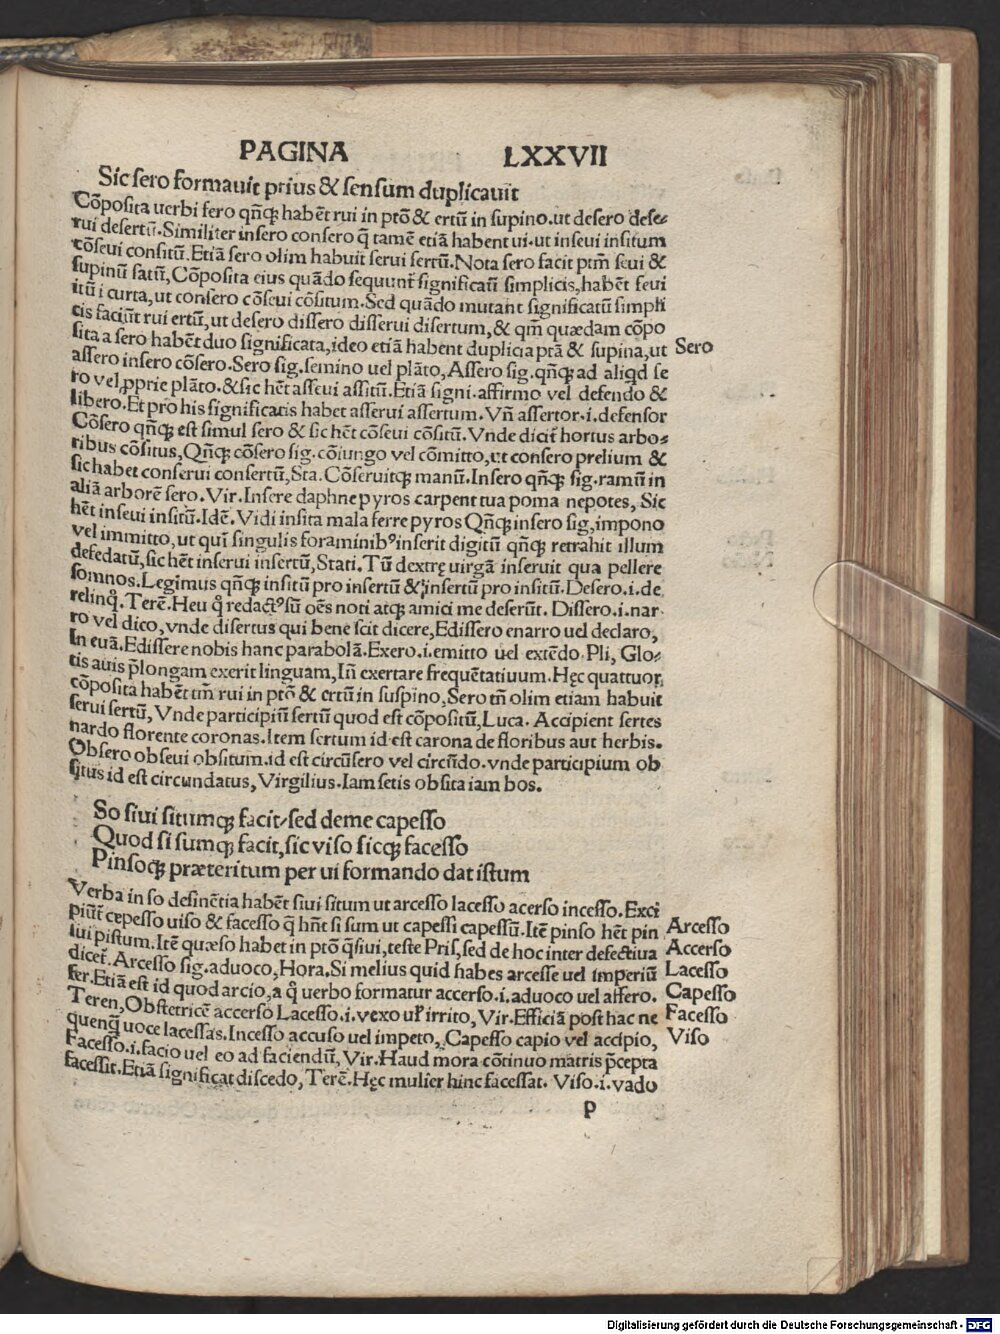 PAGINA LXXVII
Sic sero formauit prius & sensum duplicauit
Cōposita uerbi sero qñqꝫ habēt rui in ptō & ertū in supino.ut desero dese⸗
rui desertū.Similiter insero consero q̄ tamē etiā habent ui.ut inseui insitum
cōseui consitū.Etiā sero olim habuit serui sertū.Nota sero facit ptm̄ seui &
supinū satū,Cōposita eius quādo sequunt̄ significatū simplicis,habēt seui
itū i curta,ut consero cōseui cōsitum.Sed quādo mutant significatū simpli
cis faciūt rui ertū,ut desero dissero disserui disertum,& qm̄ quædam cōpo
sita a sero habēt duo significata,ideo etiā habent duplicia ptā & supina,ut
Sero
assero insero cōsero.Sero sig.semino uel plāto,Assero sig.qñqꝫ ad aliqd se
ro vel ꝓprie plāto.& sic hēt asseui assitū.Etiā signi.affirmo vel defendo &
libero.Et pro his significatis habet asserui assertum.Vñ assertor.i.defensor
Cōsero qñqꝫ est simul sero & sic hēt cōseui cōsitū.Vnde dicit̄ hortus arbo⸗
ribus cōsitus,Qñqꝫ cōsero sig.cōiungo vel cōmitto,ut consero prelium &
sic habet conserui consertū,Sta.Cōseruitqꝫ manū.Insero qñqꝫ sig.ramū in
aliā arborē sero.Vir.Insere daphne pyros carpent tua poma nepotes, Sic
hēt inseui insitū.Idē.Vidi insita mala ferre pyros Qñqꝫ insero sig,impono
vel immitto,ut qui singulis foraminibꝰ inserit digitū qñqꝫ retrahit illum
defedatū,sic hēt inserui insertū,Stati.Tū dextrę uirgā inseruit qua pellere
somnos.Legimus qñqꝫ insitū pro insertū & insertū pro insitū.Desero.i.de
relinq̄.Terē.Heu q̄ redactꝰ sū oēs noti atqꝫ amici me deserūt. Dissero.i.nar
ro vel dico,vnde disertus qui bene scit dicere,Edissero enarro uel declaro,
In euā.Edissere nobis hanc parabolā.Exero.i.emitto uel extēdo.Pli, Glo⸗
tis auis p̄longam exerit linguam,Iñ exertare frequētatiuum.Hęc quattuor
cōposita habēt tm̄ rui in ptō & ertū in suspino,Sero tm̄ olim etiam habuit
serui sertū,Vnde participiū sertū quod est cōpositū,Luca. Accipient sertes
nardo florente coronas.Item sertum id est carona de floribus aut herbis.
Obsero obseui obsitum.id est circūsero vel circūdo.vnde participium ob
situs id est circundatus, Virgilius.Iam setis obsita iam bos.
So siui situmqꝫ facit/sed deme capesso
Quod si sumqꝫ facit,sic viso sicqꝫ facesso
Pinsoqꝫ præteritum per ui formando dat istum
Verba in so desinētia habēt siui situm ut arcesso lacesso acerso incesso.Exci
piūt̄ cepesso uiso & facesso q̄ hñt si sum ut capessi capessū.Itē pinso hēt pin
Arcesso
sui pistum.Itē quæso habet in ptō q̄siui,teste Pris,sed de hoc inter defectiua
Accerso
dicet̄.Arcesso sig.aduoco,Hora.Si melius quid habes arcesse uel imperiū
Lacesso
fer.Etiā est id quod arcio,a q̄ uerbo formatur accerso.i.aduoco uel affero.
Capesso
Teren,Obstetricē accerso Lacesso.i.vexo ul̄ irrito, Vir.Efficiā post hac ne
Facesso
quenq̄ uoce lacessas.Incesso accuso uel impeto,.Capesso capio vel accipio,
Viso
Facesso.i.facio uel eo ad faciendū, Vir.Haud mora cōtinuo matris p̄cepta
facessit.Etiā significat discedo, Terē.Hęc mulier hinc facessat. Viso.i.vado
p
Digitalisierung gefördert durch die Deutsche Forschungsgemeinschaft - DFG